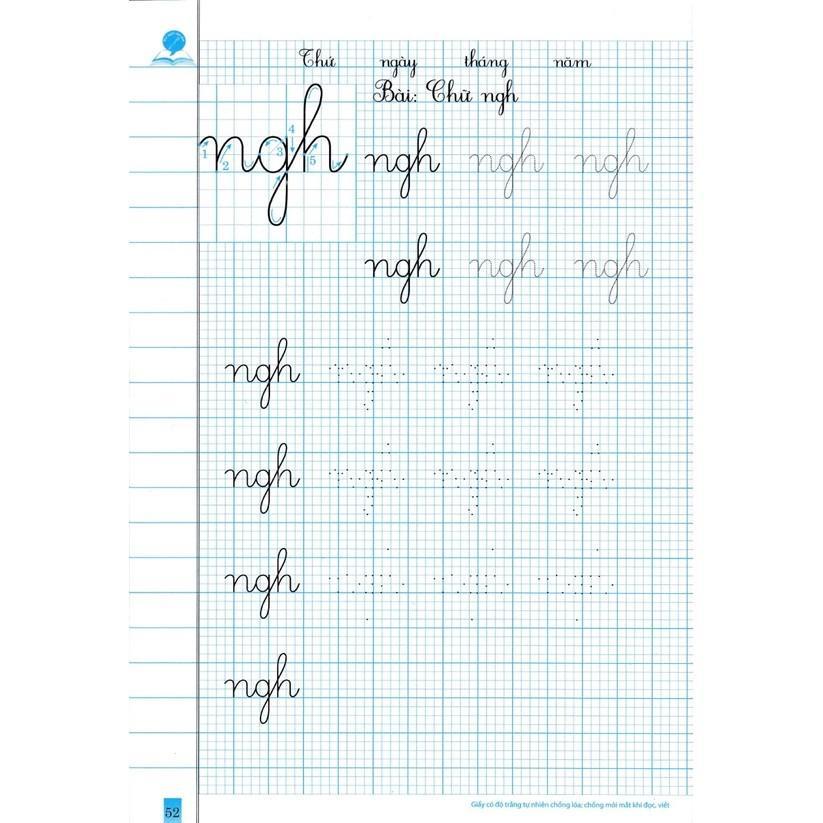 Thứ ngày tháng năm
Bài: Chữ ngh
ngh ngh ngh ngh
1 2 3 4 5
ngh ngh ngh
ngh ngh ngh ngh
ngh ngh ngh ngh
ngh ngh ngh ngh
ngh
52
Giấy có độ trắng tự nhiên chống lóa; chống mỏi mắt khi đọc, viết